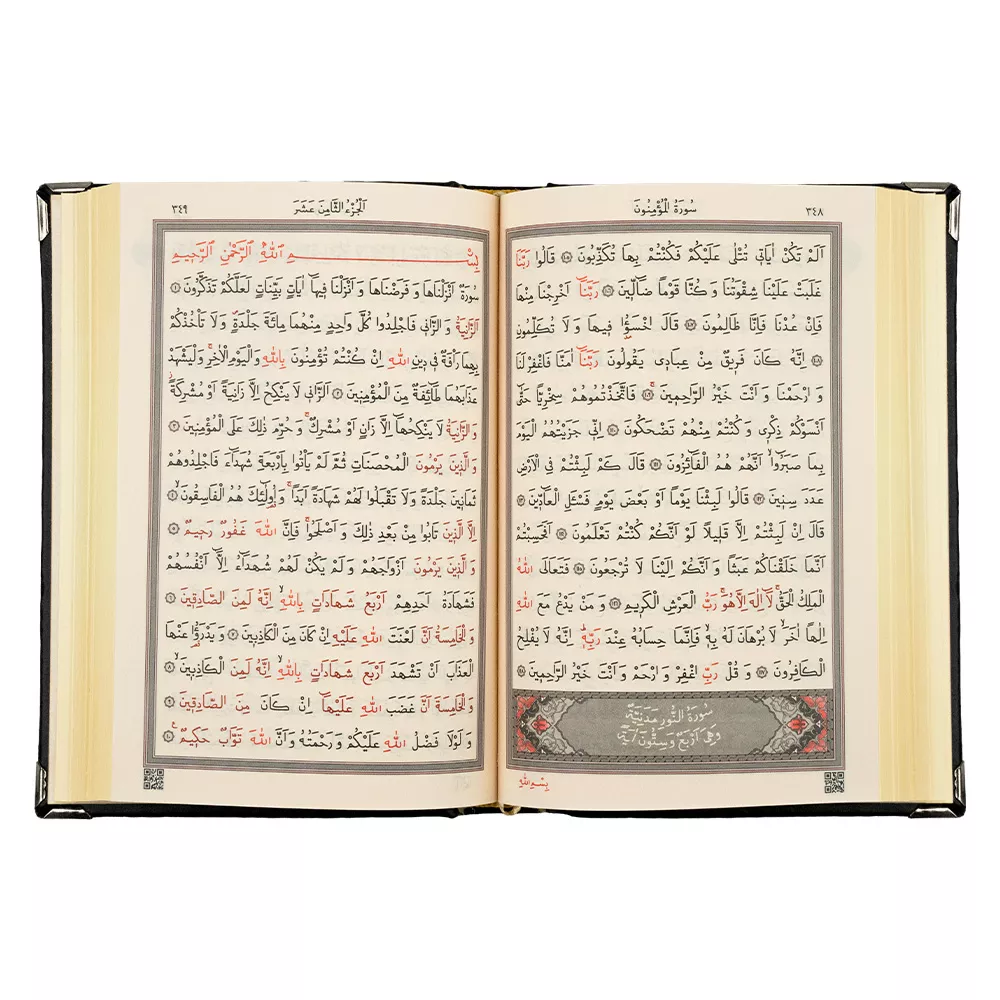 ٣٤٨
سُورَةُ الْمُؤْمِنُونَ
اَلَمْ تَكُنْ اٰيَاتٖى تُتْلٰى عَلَيْكُمْ فَكُنْتُمْ بِهَا تُكَذِّبُونَ ﴿١٠٥﴾ قَالُوا رَبَّنَا
غَلَبَتْ عَلَيْنَا شِقْوَتُنَا وَكُنَّا قَوْمًا ضَٓالّٖينَ ﴿١٠٦﴾ رَبَّنَٓا اَخْرِجْنَا مِنْهَا
فَاِنْ عُدْنَا فَاِنَّا ظَالِمُونَ ﴿١٠٧﴾ قَالَ اخْسَؤُ۫ا فٖيهَا وَلَا تُكَلِّمُونِ
﴿١٠٨﴾ اِنَّهُ كَانَ فَرٖيقٌ مِنْ عِبَادٖى يَقُولُونَ رَبَّنَٓا اٰمَنَّا فَاغْفِرْ لَنَا
وَارْحَمْنَا وَاَنْتَ خَيْرُ الرَّاحِمٖينَ ﴿١٠٩﴾ فَاتَّخَذْتُمُوهُمْ سِخْرِيًّا حَتّٰٓى
اَنْسَوْكُمْ ذِكْرٖى وَكُنْتُمْ مِنْهُمْ تَضْحَكُونَ ﴿١١٠﴾ اِنّٖى جَزَيْتُهُمُ الْيَوْمَ
بِمَا صَبَرُٓوا اَنَّهُمْ هُمُ الْفَٓائِزُونَ ﴿١١١﴾ قَالَ كَمْ لَبِثْتُمْ فِى الْاَرْضِ
عَدَدَ سِنٖينَ ﴿١١٢﴾ قَالُوا لَبِثْنَا يَوْمًا اَوْ بَعْضَ يَوْمٍ فَسْـَٔلِ الْعَٓادّٖينَ ﴿١١٣﴾
قَالَ اِنْ لَبِثْتُمْ اِلَّا قَلٖيلًا لَوْ اَنَّكُمْ كُنْتُمْ تَعْلَمُونَ ﴿١١٤﴾ اَفَحَسِبْتُمْ
اَنَّمَا خَلَقْنَاكُمْ عَبَثًا وَاَنَّكُمْ اِلَيْنَا لَا تُرْجَعُونَ ﴿١١٥﴾ فَتَعَالَى اللّٰهُ
الْمَلِكُ الْحَقُّ لَٓا اِلٰهَ اِلَّا هُوَ رَبُّ الْعَرْشِ الْكَرٖيمِ ﴿١١٦﴾ وَمَنْ يَدْعُ مَعَ اللّٰهِ
اِلٰهًا اٰخَرَ لَا بُرْهَانَ لَهُ بِهٖ فَاِنَّمَا حِسَابُهُ عِنْدَ رَبِّهٖ اِنَّهُ لَا يُفْلِحُ
الْكَافِرُونَ ﴿١١٧﴾ وَقُلْ رَبِّ اغْفِرْ وَارْحَمْ وَاَنْتَ خَيْرُ الرَّاحِمٖينَ ﴿١١٨﴾
سُورَةُ النُّورِ مَدَنِيَّةٌ
وَهِىَ اَرْبَعٌ وَسِتُّونَ اٰيَةً
بِسْمِ اللّٰهِ
اَلْجُزْءُ الثَّامِنَ عَشَرَ
٣٤٩
بِسْمِ اللّٰهِ الرَّحْمٰنِ الرَّحٖيمِ
سُورَةٌ اَنْزَلْنَاهَا وَفَرَضْنَاهَا وَاَنْزَلْنَا فٖيهَٓا اٰيَاتٍ بَيِّنَاتٍ لَعَلَّكُمْ تَذَكَّرُونَ ﴿١﴾
اَلزَّانِيَةُ وَالزَّانٖى فَاجْلِدُوا كُلَّ وَاحِدٍ مِنْهُمَا مِائَةَ جَلْدَةٍ وَلَا تَأْخُذْكُمْ
بِهِمَا رَأْفَةٌ فٖى دٖينِ اللّٰهِ اِنْ كُنْتُمْ تُؤْمِنُونَ بِاللّٰهِ وَالْيَوْمِ الْاٰخِرِ وَلْيَشْهَدْ
عَذَابَهُمَا طَٓائِفَةٌ مِنَ الْمُؤْمِنٖينَ ﴿٢﴾ اَلزَّانٖى لَا يَنْكِحُ اِلَّا زَانِيَةً اَوْ مُشْرِكَةً
وَالزَّانِيَةُ لَا يَنْكِحُهَٓا اِلَّا زَانٍ اَوْ مُشْرِكٌ وَحُرِّمَ ذٰلِكَ عَلَى الْمُؤْمِنٖينَ ﴿٣﴾
وَالَّذٖينَ يَرْمُونَ الْمُحْصَنَاتِ ثُمَّ لَمْ يَأْتُوا بِاَرْبَعَةِ شُهَدَٓاءَ فَاجْلِدُوهُمْ
ثَمَانٖينَ جَلْدَةً وَلَا تَقْبَلُوا لَهُمْ شَهَادَةً اَبَدًا وَاُولٰٓئِكَ هُمُ الْفَاسِقُونَ ﴿٤﴾
اِلَّا الَّذٖينَ تَابُوا مِنْ بَعْدِ ذٰلِكَ وَاَصْلَحُوا فَاِنَّ اللّٰهَ غَفُورٌ رَحٖيمٌ ﴿٥﴾
وَالَّذٖينَ يَرْمُونَ اَزْوَاجَهُمْ وَلَمْ يَكُنْ لَهُمْ شُهَدَٓاءُ اِلَّٓا اَنْفُسُهُمْ
فَشَهَادَةُ اَحَدِهِمْ اَرْبَعُ شَهَادَاتٍ بِاللّٰهِ اِنَّهُ لَمِنَ الصَّادِقٖينَ ﴿٦﴾
وَالْخَامِسَةُ اَنَّ لَعْنَتَ اللّٰهِ عَلَيْهِ اِنْ كَانَ مِنَ الْكَاذِبٖينَ ﴿٧﴾ وَيَدْرَؤُ۬ا عَنْهَا
الْعَذَابَ اَنْ تَشْهَدَ اَرْبَعَ شَهَادَاتٍ بِاللّٰهِ اِنَّهُ لَمِنَ الْكَاذِبٖينَ ﴿٨﴾
وَالْخَامِسَةَ اَنَّ غَضَبَ اللّٰهِ عَلَيْهَٓا اِنْ كَانَ مِنَ الصَّادِقٖينَ ﴿٩﴾
وَلَوْلَا فَضْلُ اللّٰهِ عَلَيْكُمْ وَرَحْمَتُهُ وَاَنَّ اللّٰهَ تَوَّابٌ حَكٖيمٌ ﴿١٠﴾